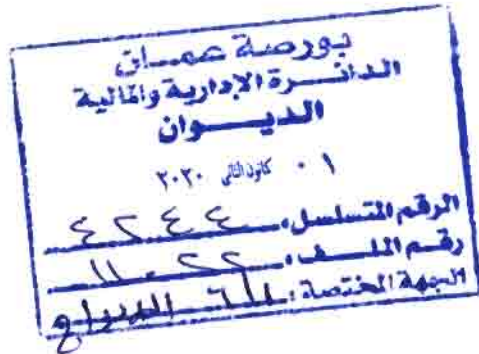 بورصة عمان
الدائرة الإدارية والمالية
الديوان
٠١ كانون الثاني ٢٠٢٠
الرقم المتسلسل: ٤٢٤٤
رقم الملف: ١١٠٢٢
الجهة المختصة: